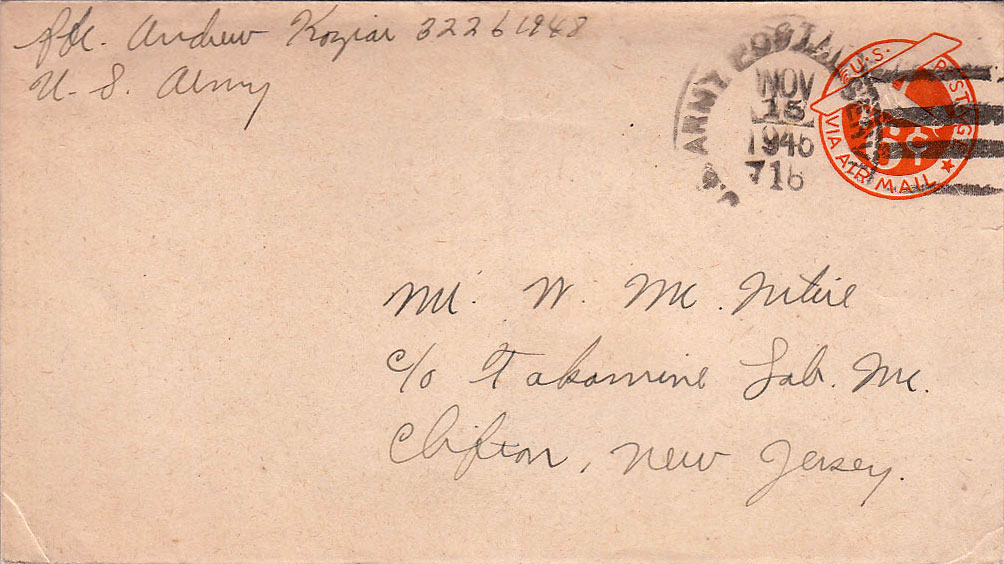 Pfc. Andrew Koziar 32261948
U. S. Army
U.S. ARMY POSTAL SERVICE
NOV
15
1946
716
U.S. POSTAGE
6¢
VIA AIR MAIL
Mr. W. Mc. Intire
c/o Takamine Lab. Inc.
Clifton, New Jersey.